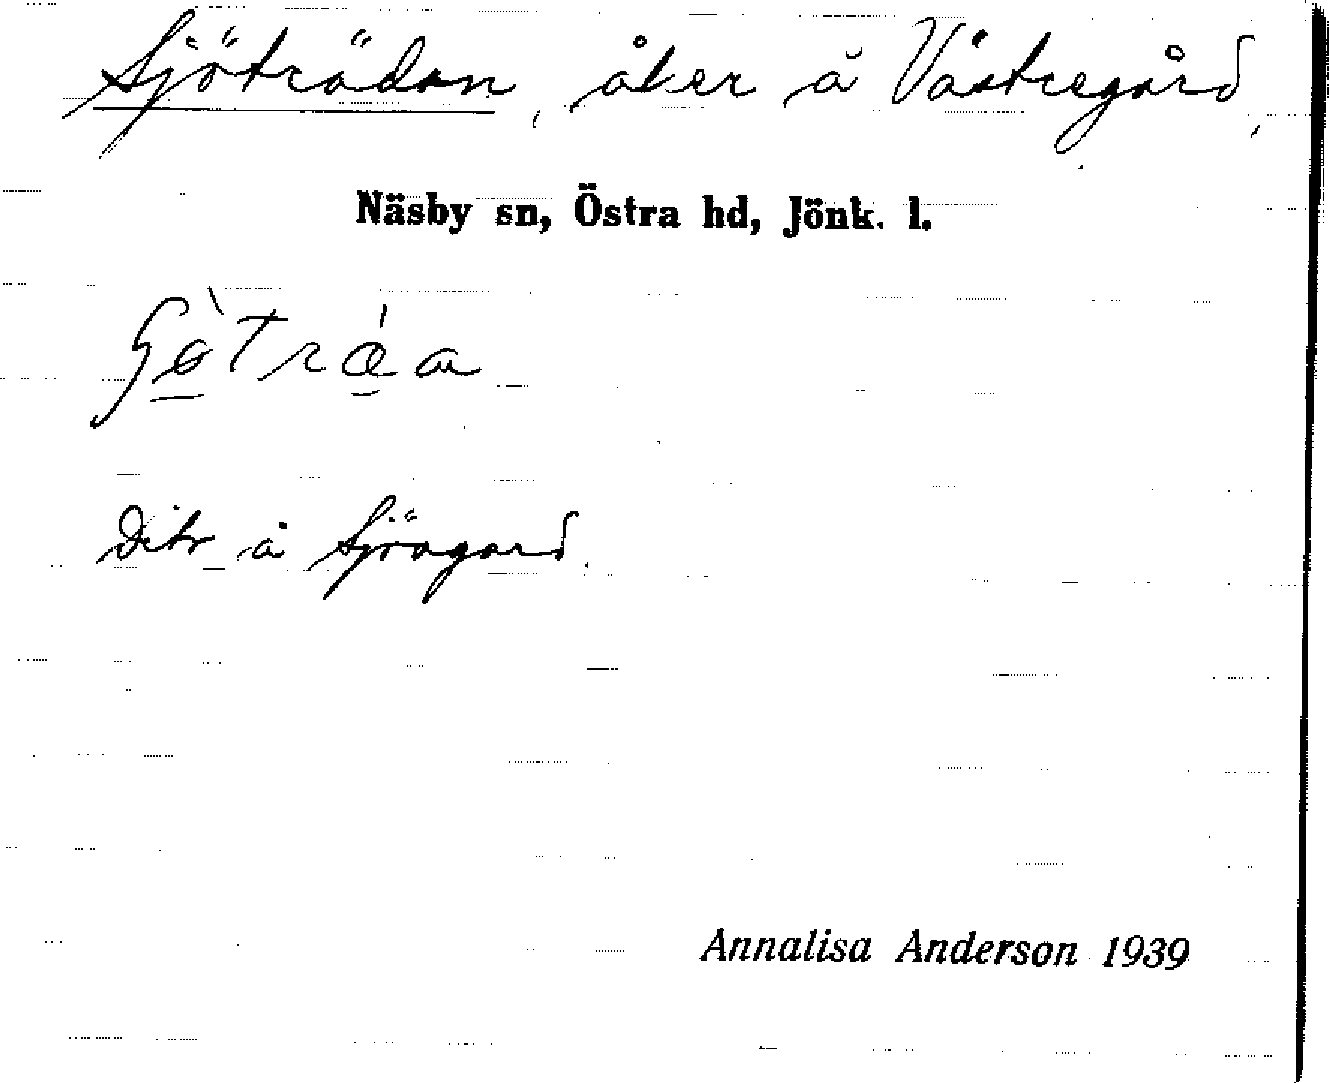 Sjöträdan, åker å Västregård,
Näsby sn, Östra hd, Jönk. l.
Dito å Sjöagard.
Annalisa Anderson 1939